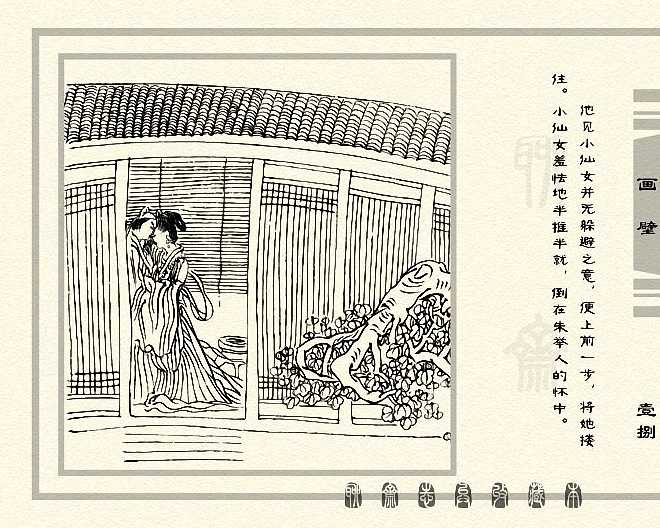 画壁
壹捌
他见小仙女并无躲避之意，便上前一步，将她搂
住。小仙女羞怯地半推半就，倒在朱举人的怀中。
聊斋志异收藏本